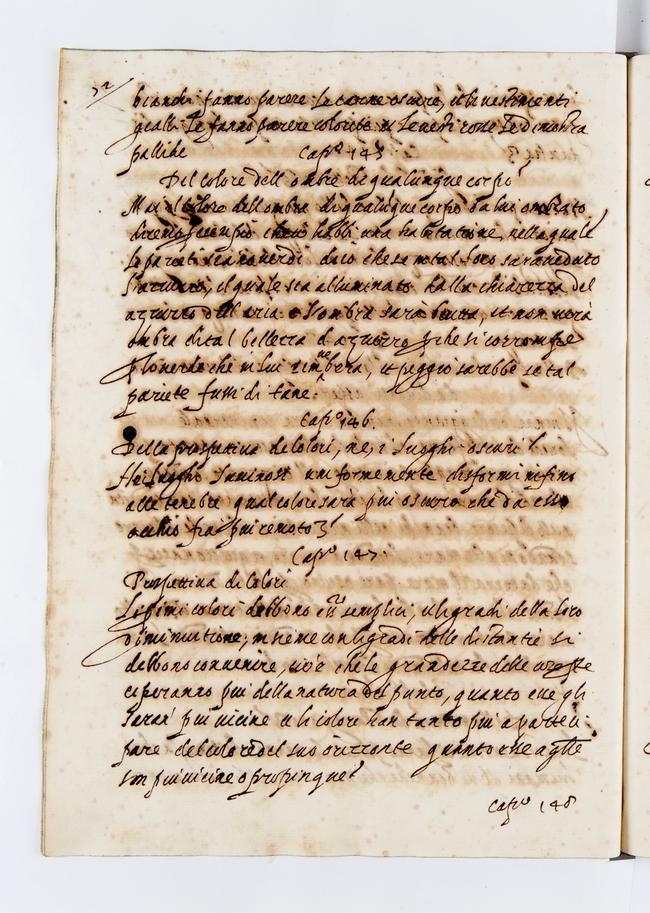 bianchi fanno parere le carne oscure, et li vestimenti
gialli le fanno parere colorite et le vesti rosse le dimostra
pallide Cap.º 145
Del colore dell ombre di qualunque corpo
Mai il colore dell ombra di qualunque corpo
che vi habbi una habitatione, nella quale
le pareti siano verdi
l'azzurro, il quale sia alluminato dalla chiarezza del
azzurro dell aria
ombra di tal bellezza d azzurro che si corrompe
verde che in lui rimbera, et peggio sarebbe se tal
pariete fussi di tane.
Cap.º 146.
Della prospettiva de colori, ne, i luoghi oscuri
luoghi luminosi uniformemente disformi insino
alle tenebre qual colore sara piu oscuro che da esso
occhio fia piu remoto
Cap.º 147.
Prospettiva di Colori
Le primi colori debbono semplici, et li gradi della loro
diminutione, insieme con li gradi delle distantie si
debbono convenire, cioè che le grandezze delle
piu della natura del punto, quanto
saran piu vicine et li colore han tanto piu a parteci
pare del colore del suo orizzonte quanto
son piu vicine o propinque
Cap.º 148